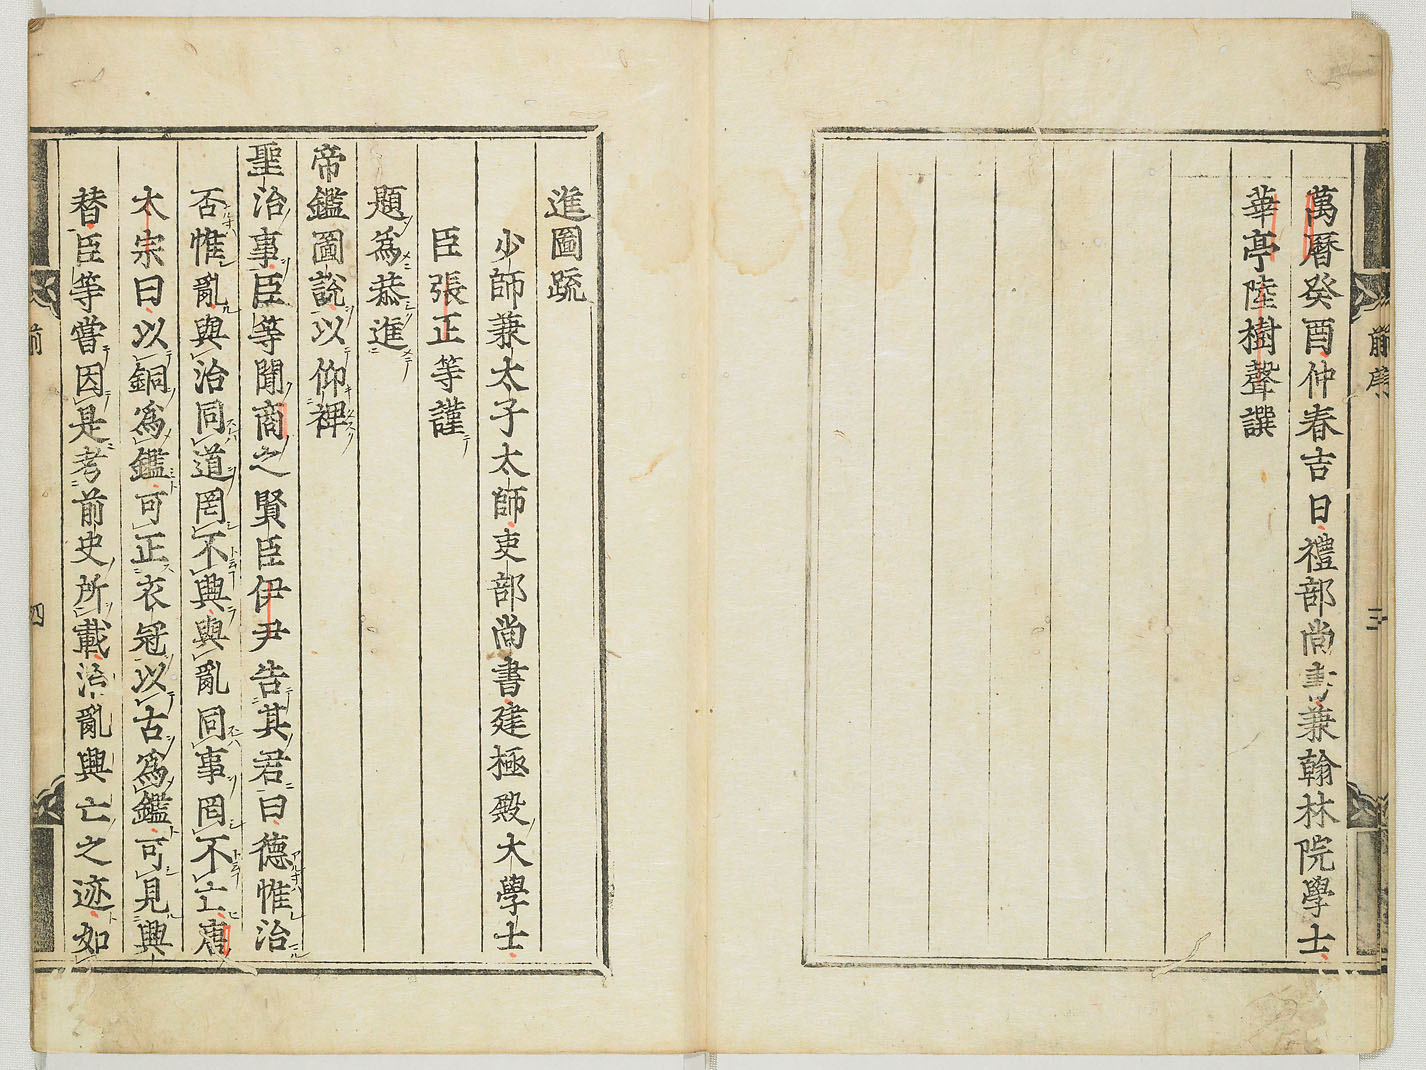 萬曆癸酉仲春吉日禮部尚書兼翰林院學士
華亭陸樹聲譔
前序
三
進圖疏
少師兼太子太師吏部尚書建極殿大學士
臣張正等謹
題爲恭進
帝鑑圖說以仰裨
聖治事臣等聞商之賢臣伊尹告其君曰德惟治
否惟亂與治同道罔不興與亂同事罔不亡唐
太宗曰以銅爲鑑可正衣冠以古爲鑑可見興
替臣等嘗因是考前史所載治亂興亡之迹如
前
四